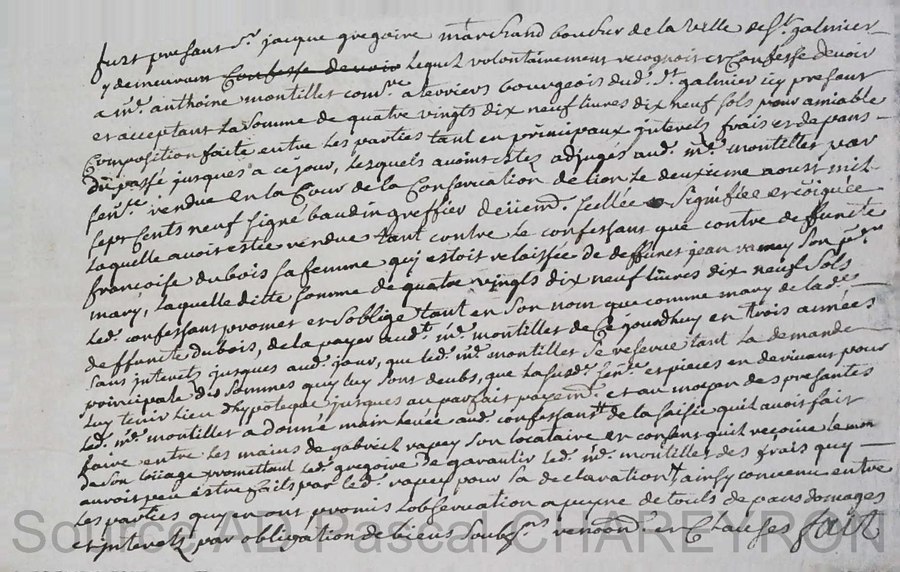 fust presant Sr. jacque gregoire marchand boucher de la ville de St. galmier
y demeurant Confesse devoir lequel volontairement recognoit et Confesse devoir
a mr. anthoine montillet comre. a terriers bourgeois dud. St. galmier icy presant
et acceptant la somme de quatre vingts dix neuf livres dix neuf sols pour amiable
Composition faite entre les parties tant en principaux interetz frais et depans
du passé jusques a ce jour, lesquels avoint estés adjugés aud. mr. montillet par
sence. rendue en la Cour de la Conservation de lion le deuxieme aoust mil
sept cents neuf signé baudin greffier scellée signifiée
laquelle avoit estée rendue tant contre le confessant que contre deffuncte
françoise dubois sa femme qui estoit relaissée de deffunct jean ramey son pr.
mary, laquelle ditte somme de quatre vingts dix neuf livres dix neuf sols
led. confessant promet et soblige tant en son nom que comme mary de lad.
deffuncte dubois, de la payer audt. mr. montillet de ce jourdhuy en trois années
sans interetz jusques aud. jour, que led. mr. montillet se reserve tant la demande
principale des sommes quy luy sont deubs, que lasusd. sence. et pieces en devivant pour
luy tenir lieu dhypoteque jusques au parfait payemt. et au moyen des presantes
led. mr. montillet a donné main levée aud. confessant de la saisie quil avoit fait
faire entre les mains de gabriel rapey son locataire et consent quil reçoive le
de son loüage promettant led. gregoire de garantir led. mr. montillet des frais quy
auroit peu estre faits par led. rapey pour sa declaration ainsy convenu entre
les parties quy en ont promis lobservation a peyne de touts depans domages
et interetz par obligation de biens soubzns. renoond. et Clauses fait
Source AD Pascal CHAREYRON